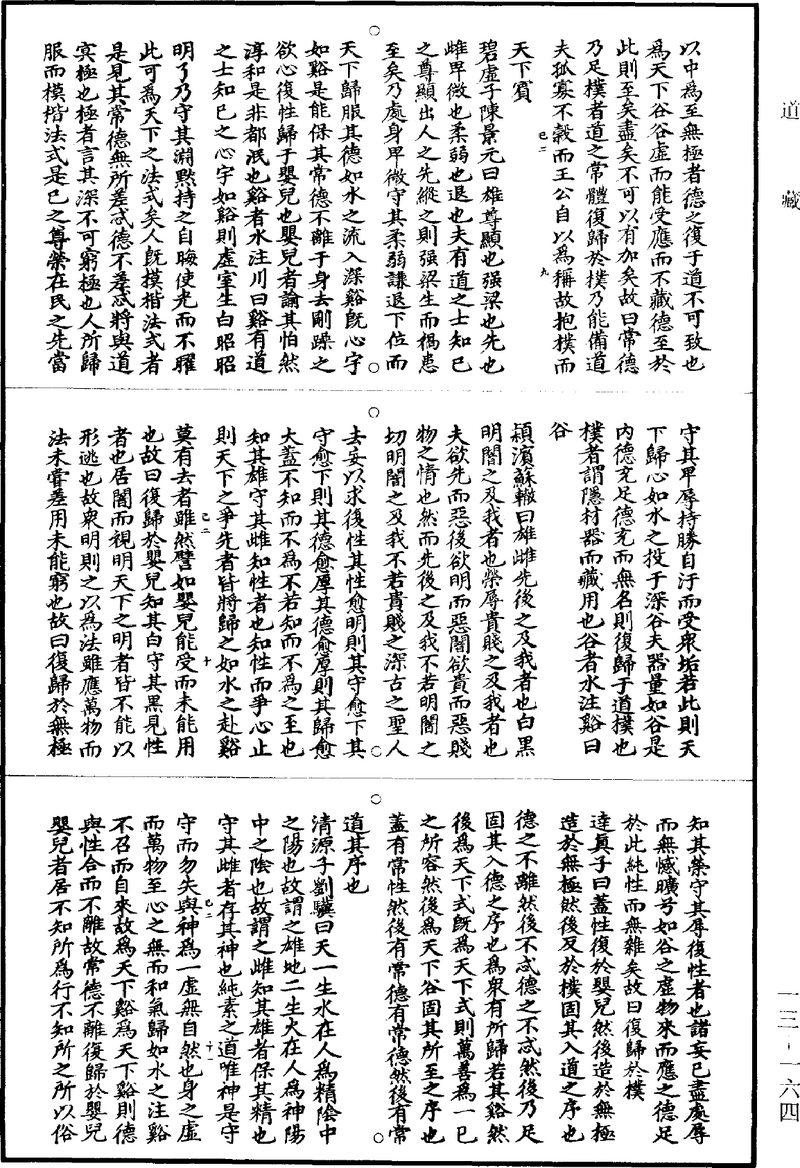 道藏
以中為至無極者德之復于道不可致也
為天下谷谷虛而能受應而不藏德至於
此則至矣盡矣不可以有加矣故曰常德
乃足樸者道之常體復歸於樸乃能備道
夫孤寡不穀而王公自以為稱故抱樸而
己二 九
天下賓
碧虛子陳景元曰雄尊顯也强梁也先也
雌卑微也柔弱也退也夫有道之士知已
之尊顯出人之先縱之則强梁生而禍患
至矣乃處身卑微守其柔弱謙退下位而
天下歸服其德如水之流入深谿旣心宇
如谿是能保其常德不離于身去剛躁之
欲心復性歸于嬰兒也嬰兒者論其怕然
淳和是非都泯也谿者水注川曰谿有道
之士知已之心宇如谿則虛室生白昭昭
明了乃守其淵黙持之自晦使光而不曜
此可為天下之法式矣人旣模楷法式者
是見其常德無所差忒德不差忒將與道
㝠極也極者言其深不可窮極也人所歸
服而模楷法式是已之尊榮在民之先當
守其卑辱持勝自汙而受衆垢若此則天
下歸心如水之投于深谷夫器量如谷是
内德充足德充而無名則復歸于道樸也
樸者謂隱材器而藏用也谷者水注谿曰
谷
潁濱蘇轍曰雄雌先後之及我者也白黑
明闇之及我者也榮辱貴賤之及我者也
夫欲先而惡後欲明而惡闇欲貴而惡賤
物之情也然而先後之及我不若明闇之
切明闇之及我不若貴賤之深古之聖人
去妄以求復性其性愈明則其守愈下其
守愈下則其德愈厚其德愈厚則其歸愈
大蓋不知而不為不若知而不為之至也
知其雄守其雌知性者也知性而爭心止
則天下之爭先者皆將歸之如水之赴谿
己二 十
莫有去者雖然譬如嬰兒能受而未能用
也故曰復歸於嬰兒知其白守其黑見性
者也居闇而視明天下之明者皆不能以
形逃也故衆明則之以為法雖應萬物而
法未嘗差用未能窮也故曰復歸於無極
知其榮守其辱復性者也諸妄已盡處辱
而無憾曠兮如谷之虛物來而應之德足
於此純性而無雜矣故曰復歸於樸
達真子曰蓋性復於嬰兒然後造於無極
造於無極然後及於樸固其入道之序也
德之不離然後不忒德之不忒然後乃足
固其入德之序也為衆有所歸若其谿然
後為天下式旣為天下式則萬善為一已
之所容然後為天下谷固其所至之序也
蓋有常性然後有常德有常德然後有常
道其序也
清源子劉驥曰天一生水在人為精陰中
之陽也故謂之雄地二生火在人為神陽
中之陰也故謂之雌知其雄者保其精也
守其雌者存其神也純素之道唯神是守
己二 十一
守而勿失與神為一虛無自然也身之虛
而萬物至心之無而和氣歸如水之注谿
不召而自來故為天下谿為天下谿則德
與性合而不離故常德不離復歸於嬰兒
嬰兒者居不知所為行不知所之所以俗
一三-一六四